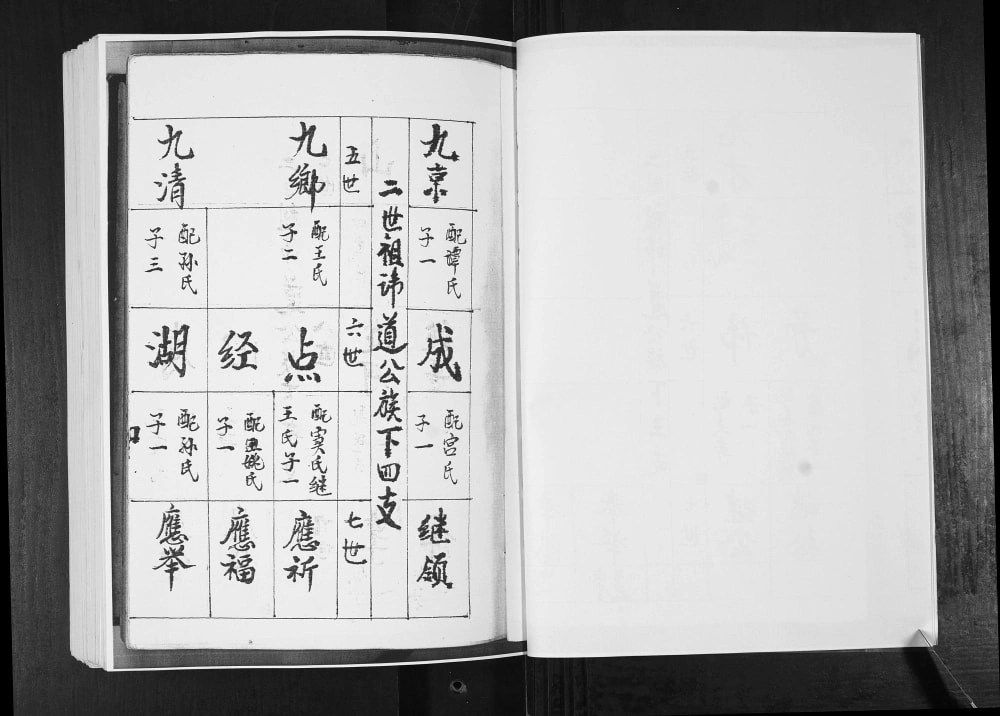 九京
配谭氏
子一
成
配宫氏
子一
继领
二世祖讳道公族下四支
五世
六世
七世
九鄉
配王氏
子二
点
配寅氏继
王氏子一
應祈
经
配王姚氏
子一
應福
九清
配孙氏
子三
湖
配孙氏
子一
應举